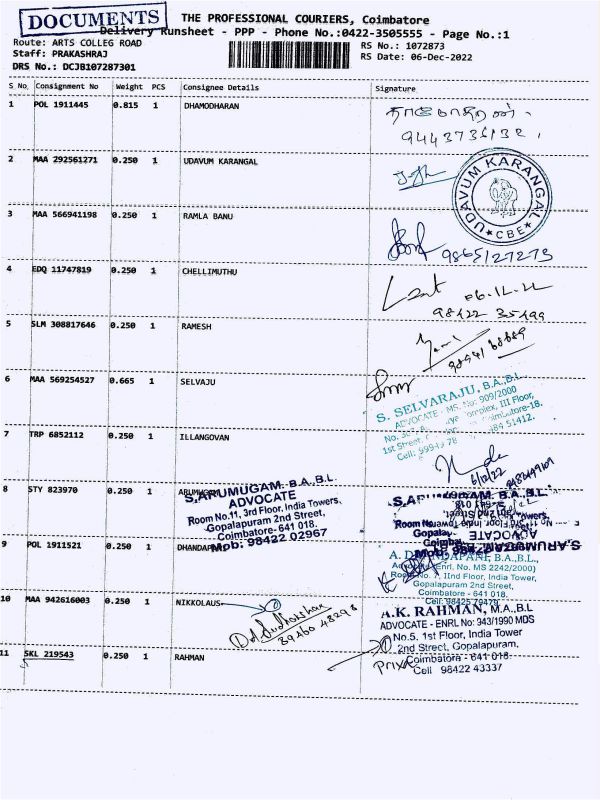 DOCUMENTS
THE PROFESSIONAL COURIERS, Coimbatore
Delivery Runsheet - PPP - Phone No.:0422-3505555 - Page No.:1
Route: ARTS COLLEG ROAD
Staff: PRAKASHRAJ
DRS No.: DCJB107287301
RS No.: 1072873
RS Date: 06-Dec-2022
S No. Consignment No Weight PCS Consignee Details Signature
1 POL 1911445 0.815 1 DHAMODHARAN
தாமோதரன்.
9443736132.
2 MAA 292561271 0.250 1 UDAVUM KARANGAL
UDAVUM KARANGAL
* CBE *
3 MAA 566941198 0.250 1 RAMLA BANU
9865127273
4 EDQ 11747819 0.250 1 CHELLIMUTHU
06.12.22
98422 35499
5 SLM 308817646 0.250 1 RAMESH
98941 68689
6 MAA 569254527 0.665 1 SELVAJU
S. SELVARAJU, B.A.,B.L.
ADVOCATE - MS. No: 909/2000
III Floor,
1st Street,
Coimbatore-18.
51412.
7 TRP 6852112 0.250 1 ILLANGOVAN
6/12/22
8 STY 823970 0.250 1 ARUMUGAM
S.ARUMUGAM. B.A.,B.L.
ADVOCATE
Room No.11, 3rd Floor, India Towers,
Gopalapuram 2nd Street,
Coimbatore - 641 018.
Mob: 98422 02967
S.ARUMUGAM. B.A.,B.L.
ADVOCATE
9 POL 1911521 0.250 1 DHANDAPANI
A. DHANDAPANI, B.A.,B.L.,
Advocate (Enrl. No. MS 2242/2000)
Room No. 7, IInd Floor, India Tower,
Gopalapuram 2nd Street,
Coimbatore - 641 018.
Cell: 98425 79479
10 MAA 942616003 0.250 1 NIKKOLAUS
89460 48298
A.K. RAHMAN, M.A.,B.L
ADVOCATE - ENRL No: 943/1990 MDS
No.5, 1st Floor, India Tower
2nd Street, Gopalapuram,
Coimbatore - 641 018.
Cell 98422 43337
11 SKL 219543 0.250 1 RAHMAN
Priya